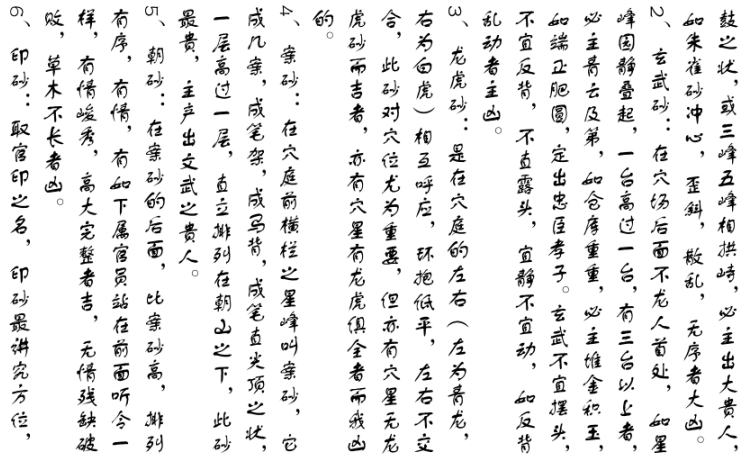 鼓之状，或三峰五峰相拱峙，必主出大贵人，
如朱雀砂冲心，歪斜，散乱，无序者大凶。
2、玄武砂：在穴场后面不龙人首处，如星
峰园静叠起，一台高过一台，有三台以上者，
必主青云及第，如仓库重重，必主堆金积玉，
如端正肥圆，定出忠臣孝子。玄武不宜摆头，
不宜反背，不直露头，宜静不宜动，如反背
乱动者主凶。
3、龙虎砂：是在穴庭的左右（左为青龙，
右为白虎）相互呼应，环抱低平，左右不交
合，此砂对穴位尤为重要，但亦有穴星无龙
虎砂而吉者，亦有穴星有龙虎俱全者而我凶
的。
4、案砂：在穴庭前横栏之星峰叫案砂，它
成几案，成笔架，成马背，成笔直尖顶之状，
一层高过一层，直立排列在朝山之下，此砂
最贵，主产出文武之贵人。
5、朝砂：在案砂的后面，比案砂高，排列
有序，有情，有如下属官员站在前面听令一
样，有情峻秀，高大完整者吉，无情残缺破
败，草木不长者凶。
6、印砂：取官印之名，印砂最讲究方位，